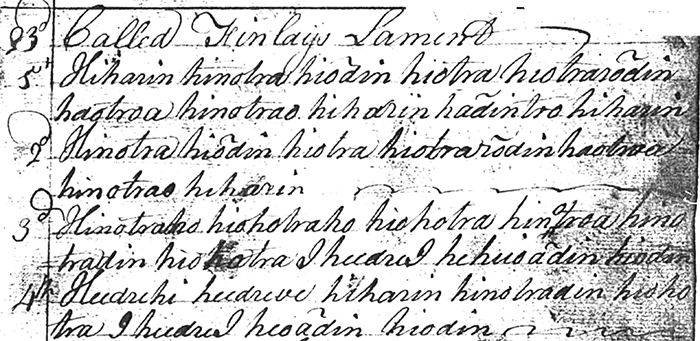 23d Called Finlays Lament
1st Hiharin hinotra hiodin hiotra hiotrarodin
haotroa hinotrao hiharin hadintro hiharin
2d Hinotra hiodin hiotra hiotrarodin haotroa
hinotrao hiharin
3d Hinotraho hiohotraho hiohotra hinotroa hino
tradin hiohotra I heedreI hehioadin hiodin
4th Heedrehi heedreve hiharin hinotradin hioho
tra I heedreI heoadin hiodin